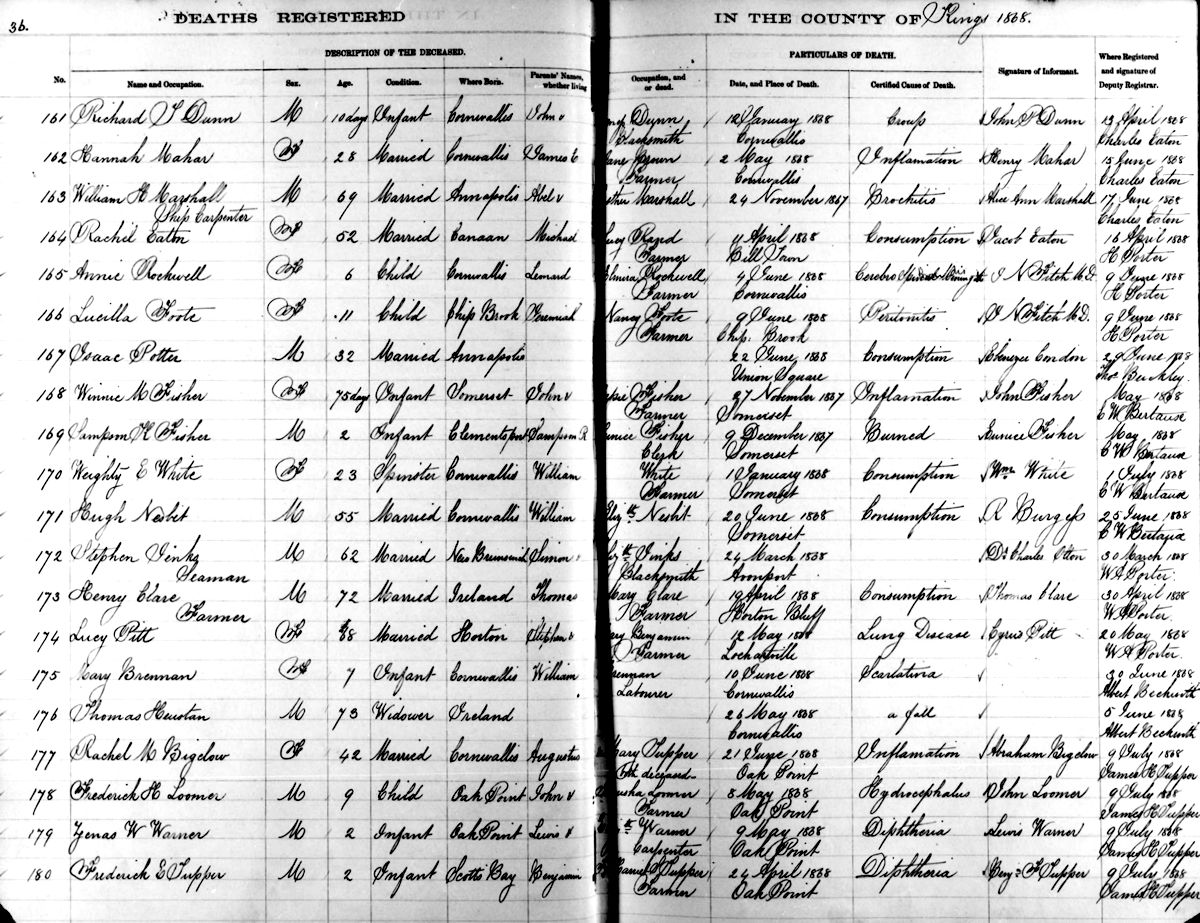 36.
DEATHS REGISTERED IN THE COUNTY OF Kings 1868.
DESCRIPTION OF THE DECEASED. PARTICULARS OF DEATH.
No. Name and Occupation. Sex. Age. Condition. Where Born. Parents' Names, whether living Occupation, and or dead. Date, and Place of Death. Certified Cause of Death. Signature of Informant. Where Registered and signature of Deputy Registrar.
161 Richard S Dunn M 10 days Infant Cornwallis John & Dunn 12 January 1868 Croup John P Dunn 13 April 1868
Blacksmith Cornwallis Charles Eaton
162 Hannah Mahar F 28 Married Cornwallis James E Brown 2 May 1868 Inflamation Henry Mahar 15 June 1868
Farmer Cornwallis Charles Eaton
163 William H Marshall M 69 Married Annapolis Abel & Marshall 24 November 1867 Brochitis Alice Ann Marshall 17 June 1868
Ship Carpenter Charles Eaton
164 Rachel Eaton F 52 Married Canaan Michael Lucy Rand 11 April 1868 Consumption Jacob Eaton 16 April 1868
Farmer Bill Town H Porter
165 Annie Rockwell F 6 Child Cornwallis Lenard Rockwell 4 June 1868 Cerebro I N Fitch M.D. 9 June 1868
Farmer Cornwallis H Porter
166 Lucilla Foote F 11 Child Chip Brook Jeremiah Nancy Foote 9 June 1868 Peritonitis I N Fitch M.D. 9 June 1868
Farmer Chip. Brook H Porter
167 Isaac Potter M 32 Married Annapolis 22 June 1868 Consumption Ebenezer Condon 29 June 1868
Union Square Thos Buckley
168 Winnie M Fisher F 75 days Infant Somerset John & Fisher 27 November 1867 Inflamation John Fisher May 1868
Farmer Somerset C W Bertaux
169 Sampson H Fisher M 2 Infant Clementsport Sampson R Eunice Fisher 9 December 1867 Burned Eunice Fisher May 1868
Clerk Somerset C W Bertaux
170 Weighty E White F 23 Spinster Cornwallis William White 1 January 1868 Consumption Wm White 1 July 1868
Farmer Somerset C W Bertaux
171 Hugh Nesbit M 55 Married Cornwallis William Elizth Nesbit 20 June 1868 Consumption R Burgess 25 June 1868
Somerset C W Bertaux
172 Stephen Jinks M 62 Married New Brunswick Simon & Jinks 24 March 1868 Dr Charles Otton 30 March 1868
Seaman Blacksmith Avonport W A Porter
173 Henry Clare M 72 Married Ireland Thomas Mary Clare 19 April 1868 Consumption Thomas Clare 30 April 1868
Farmer Farmer Horton Bluff W A Porter
174 Lucy Pitt F 88 Married Horton Stephen & Benjamin 12 May 1868 Lung Disease Cyrus Pitt 20 May 1868
Farmer Lockartville W A Porter
175 Mary Brennan F 7 Infant Cornwallis William Brennan 10 June 1868 Scarlatina 30 June 1868
Labourer Cornwallis Albert Beckwith
176 Thomas Heustan M 73 Widower Ireland 26 May 1868 a fall 5 June 1868
Cornwallis Albert Beckwith
177 Rachel M Bigelow F 42 Married Cornwallis Augustus Mary Tupper 21 June 1868 Inflamation Abraham Bigelow 9 July 1868
Both deceased Oak Point James H Tupper
178 Frederick H Loomer M 9 Child Oak Point John & Loomer 8 May 1868 Hydrocephalus John Loomer 9 July 1868
Farmer Oak Point James H Tupper
179 Zenas W Warner M 2 Infant Oak Point Lewis & Warner 9 May 1868 Diphtheria Lewis Warner 9 July 1868
Carpenter Oak Point James H Tupper
180 Frederick E Tupper M 2 Infant Scotts Bay Benjamin Tupper 24 April 1868 Diphtheria Benj. F Tupper 9 July 1868
Farmer Oak Point James H Tupper